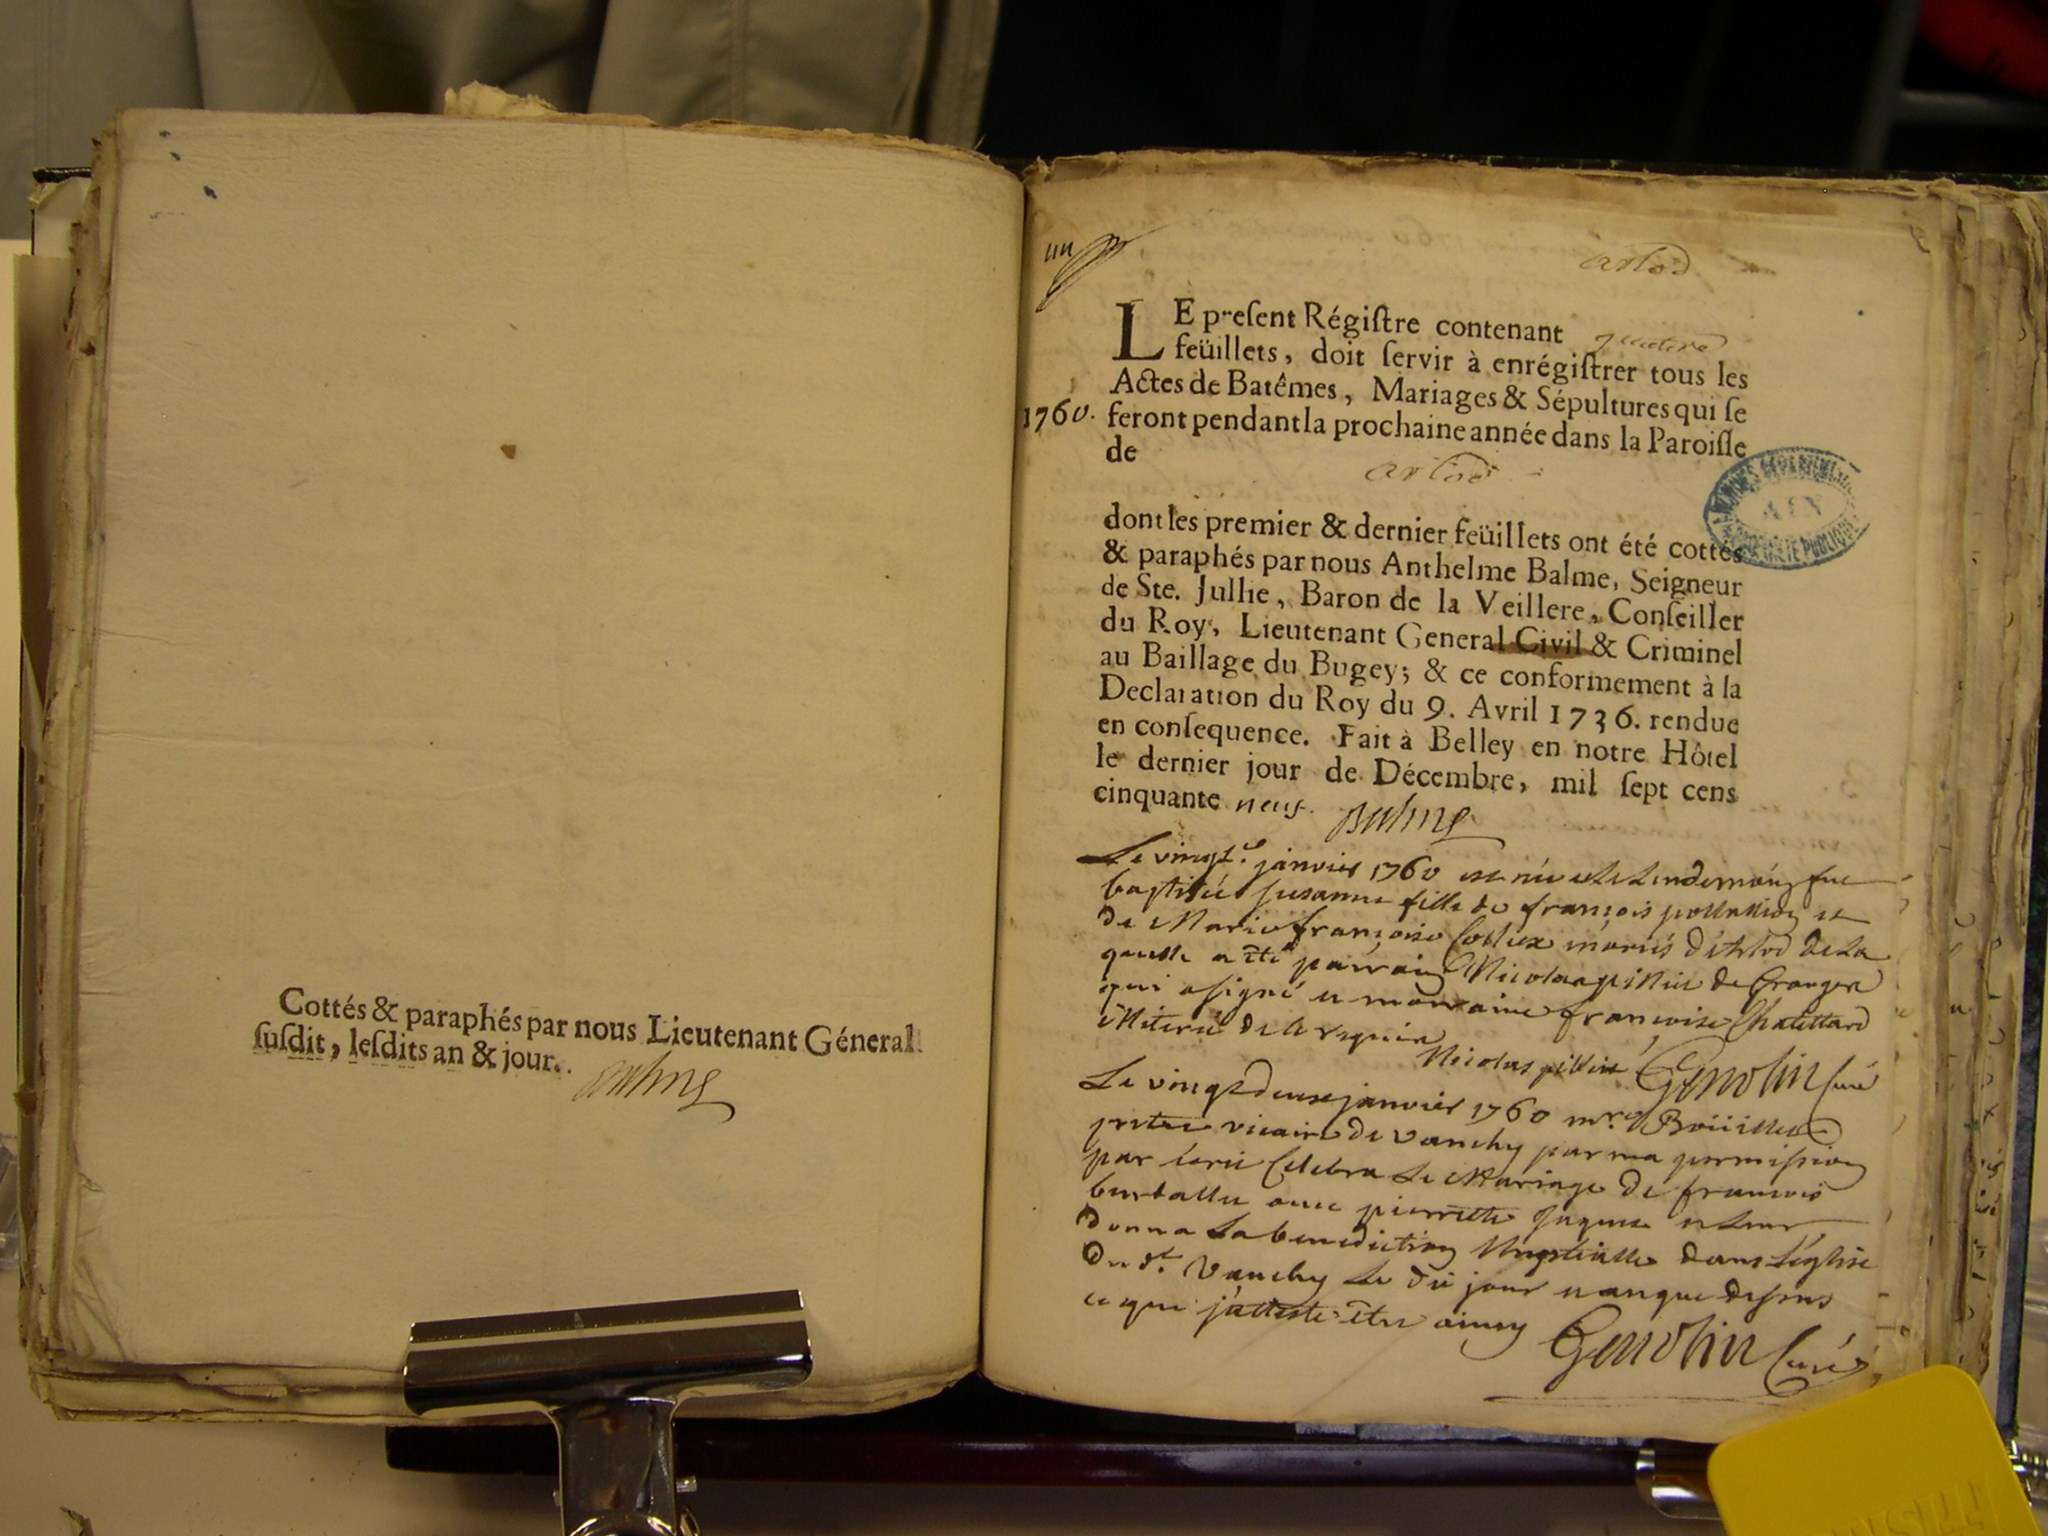 Cottés & paraphés par nous Lieutenant Géneral
susdit, lesdits an & jour.
Balme
un
arlod
LE present Régistre contenant quatre
feüillets, doit servir à enrégistrer tous les
Actes de Batêmes, Mariages & Sépultures qui se
1760. feront pendant la prochaine année dans la Paroisse
de
arlod
dont les premier & dernier feüillets ont été cottés
& paraphés par nous Anthelme Balme, Seigneur
de Ste. Jullie, Baron de la Veillere, Conseiller
du Roy, Lieutenant General Civil & Criminel
au Baillage du Bugey; & ce conformement à la
Declaration du Roy du 9. Avril 1736. rendue
en consequence. Fait à Belley en notre Hôtel
le dernier jour de Décembre, mil sept cens
cinquante neuf. Balme
AIN
Le vingt janvier 1760 est née et le lendemain fut
baptisée susanne fille de françois et
de Marie françoise mariés d'Arlod de la
quelle a été parrain Nicolas pillin de
qui a signé et marraine françoise Chatillard
Nicolas pillin Genolin Curé
Le vingt deux janvier 1760 mre Boüillet
pretre vicaire de vanchy par ma permission
par écrit Celebra Le Mariage de francois
avec pierrette et leur
donna La benediction Nuptialle dans L'église
du dt Vanchy Le dit jour et an que dessus
ce que j'atteste être ainsy Genolin Curé